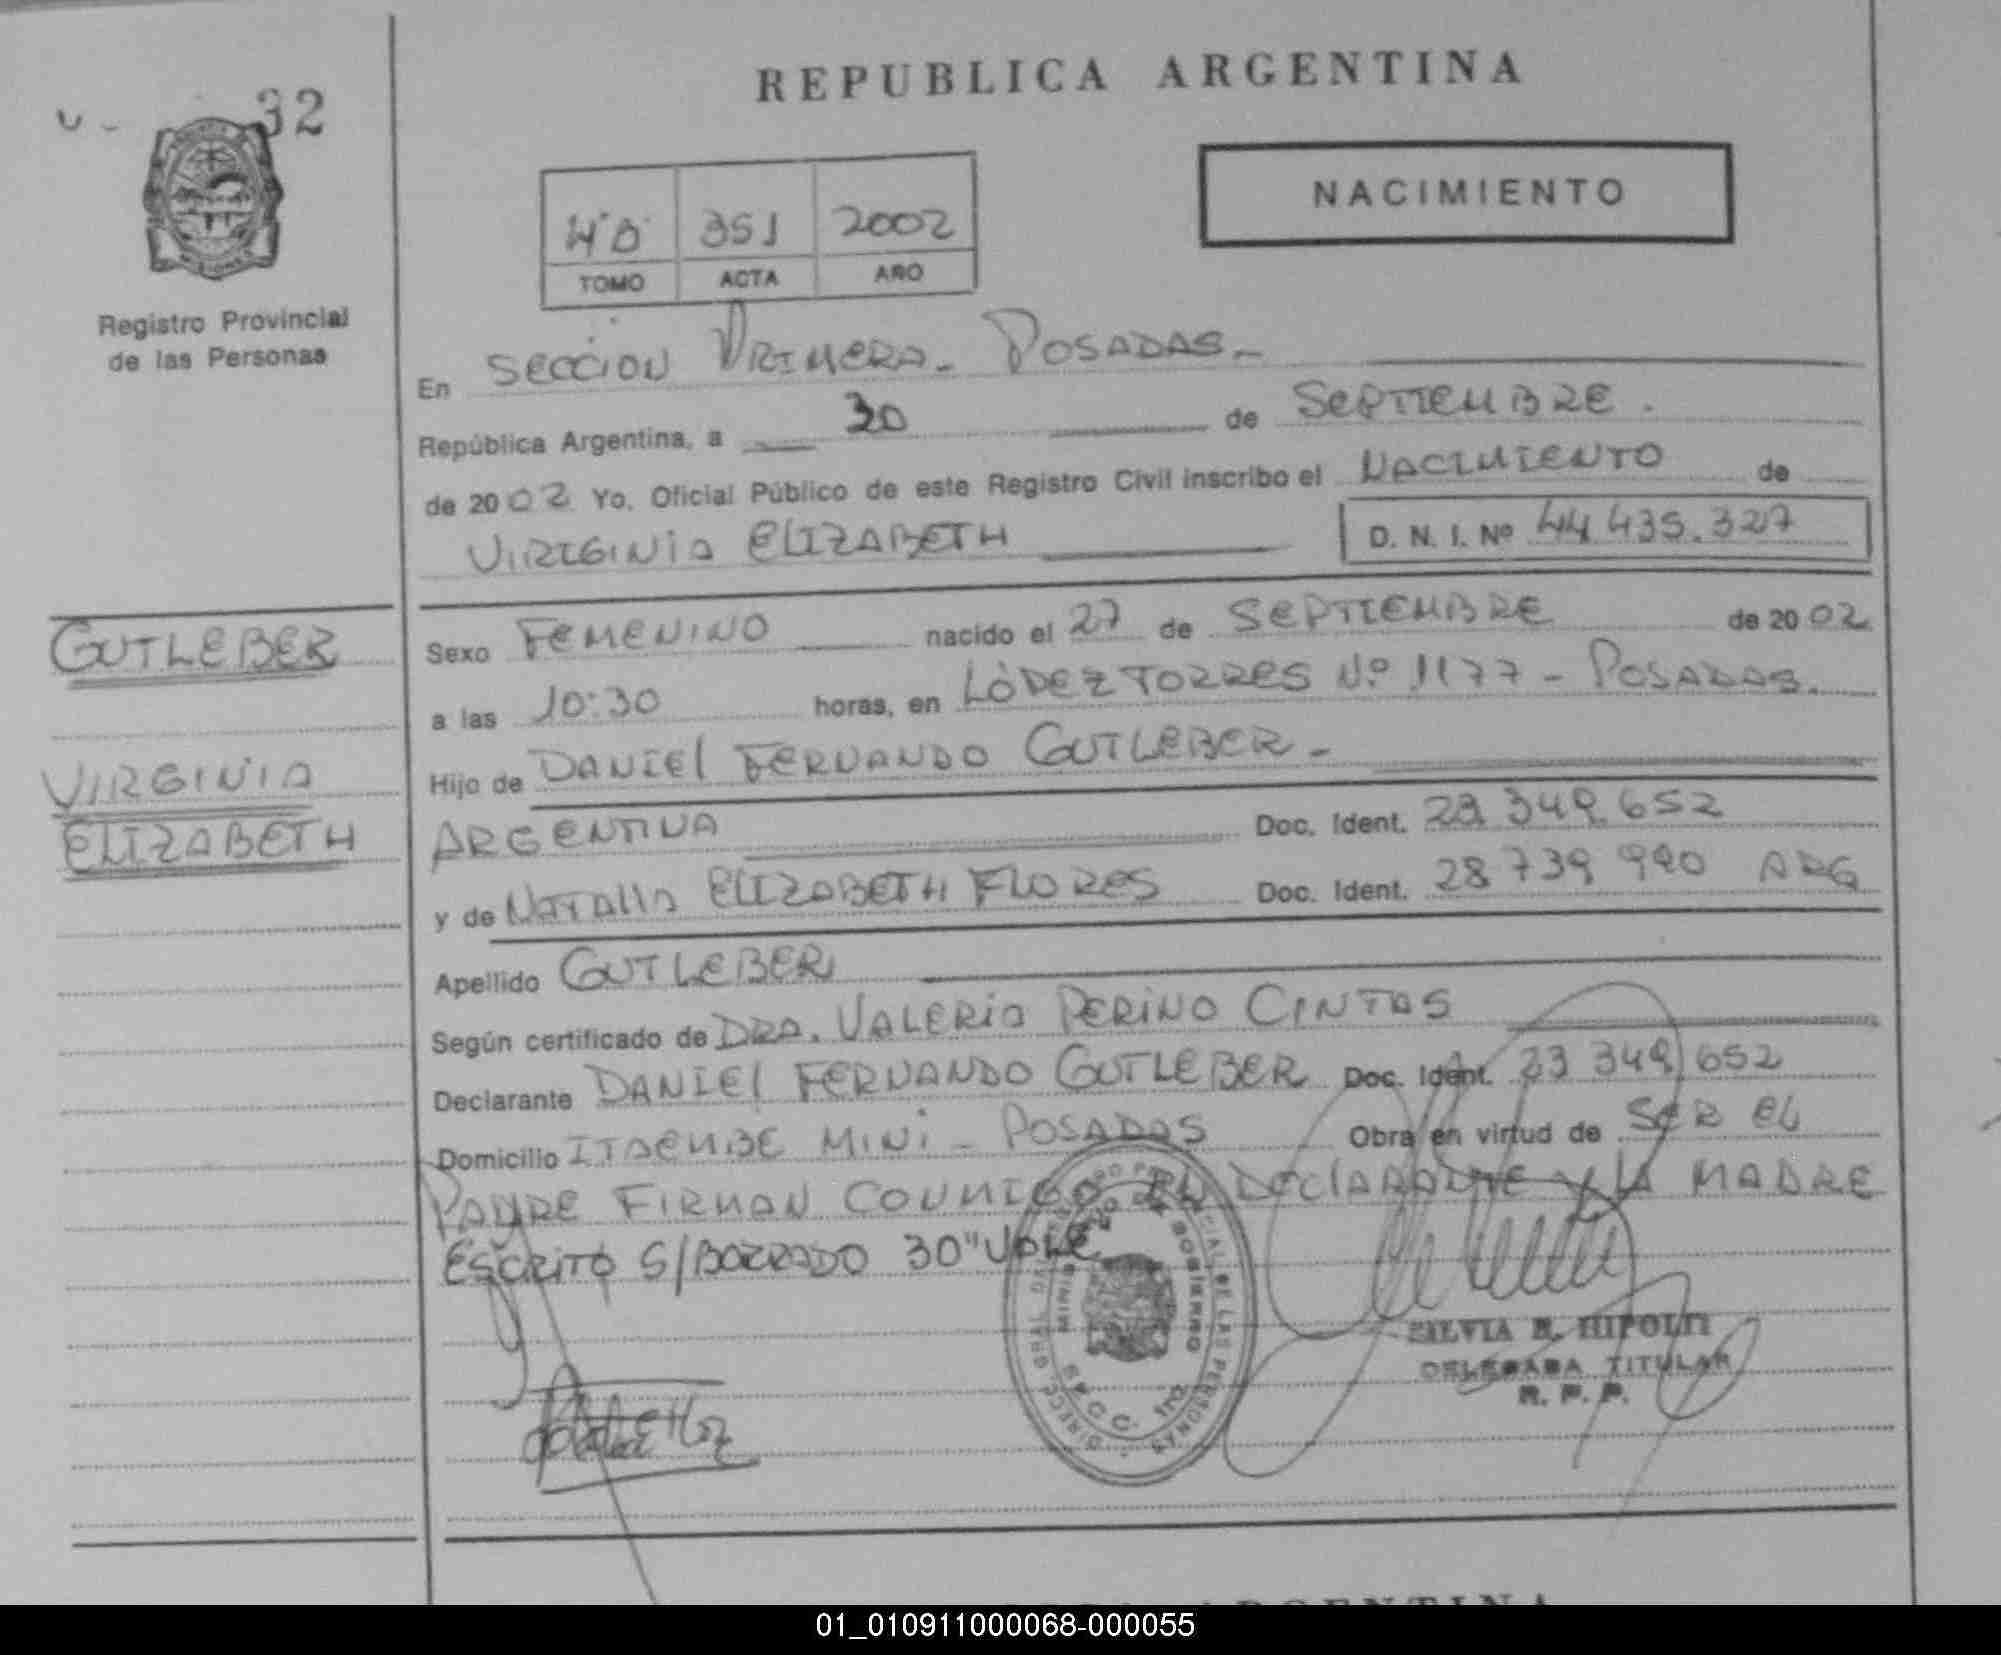 32
REPUBLICA ARGENTINA
NACIMIENTO
351 2002
TOMO ACTA AÑO
Registro Provincial
de las Personas
En SECCION PRIMERA - POSADAS -
República Argentina, a 30 de SEPTIEMBRE.
de 2002 Yo, Oficial Público de este Registro Civil inscribo el NACIMIENTO de
VIRGINIA ELIZABETH D. N. I. Nº 44.435.327
GUTLEBER
VIRGINIA
ELIZABETH
Sexo FEMENINO nacido el 27 de SEPTIEMBRE de 2002
a las 10:30 horas, en LÓPEZ TORRES Nº 1177 - POSADAS.
Hijo de DANIEL FERNANDO GUTLEBER -
ARGENTINA Doc. Ident. 23 349 652
y de NATALIA ELIZABETH FLORES Doc. Ident. 28 739 990 ARG
Apellido GUTLEBER
Según certificado de DRA. VALERIA PERINO CINTAS
Declarante DANIEL FERNANDO GUTLEBER Doc. Ident. 23 349 652
Domicilio ITAEMBE MINI - POSADAS Obra en virtud de SER EL
PADRE FIRMAN CONMIGO EL DECLARANTE Y LA MADRE
ESCRITO S/BORRADO 30" VALE
SILVIA HIPOLITI
DELEGADA TITULAR
R. P. P.
01_010911000068-000055